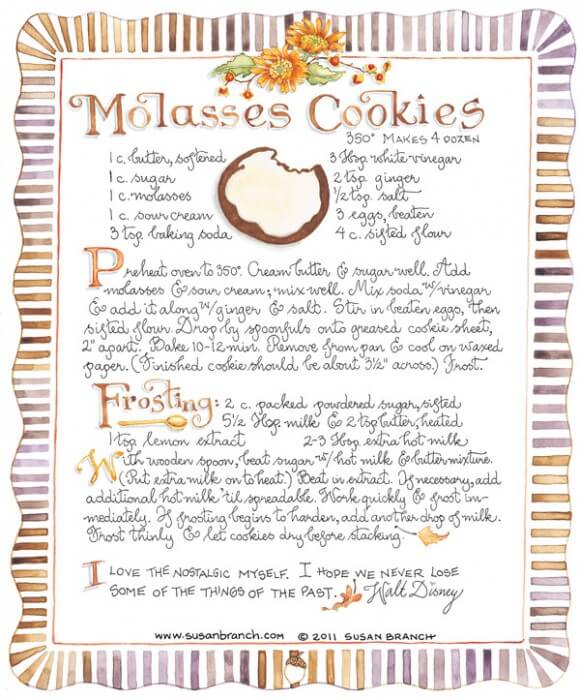 Molasses Cookies
350° MAKES 4 DOZEN
1 c. butter, softened
1 c. sugar
1 c. molasses
1 c. sour cream
3 tsp. baking soda
3 tbsp. white vinegar
2 tsp. ginger
1/2 tsp. salt
3 eggs, beaten
4 c. sifted flour
Preheat oven to 350°. Cream butter & sugar well. Add
molasses & sour cream; mix well. Mix soda w/ vinegar
& add it along w/ ginger & salt. Stir in beaten eggs, then
sifted flour. Drop by spoonfuls onto greased cookie sheet,
2" apart. Bake 10-12 min. Remove from pan & cool on waxed
paper. (Finished cookie should be about 3½" across.) Frost.
Frosting: 2 c. packed powdered sugar, sifted
5½ tbsp milk & 2 tsp butter, heated
1 tsp lemon extract 2-3 tbsp. extra hot milk
With wooden spoon, beat sugar w/ hot milk & butter mixture.
(Put extra milk on to heat.) Beat in extract. If necessary, add
additional hot milk 'til spreadable. Work quickly & frost im-
mediately. If frosting begins to harden, add another drop of milk.
Frost thinly & let cookies dry before stacking.
I LOVE THE NOSTALGIC MYSELF. I HOPE WE NEVER LOSE
SOME OF THE THINGS OF THE PAST. Walt Disney
www.susanbranch.com © 2011 SUSAN BRANCH